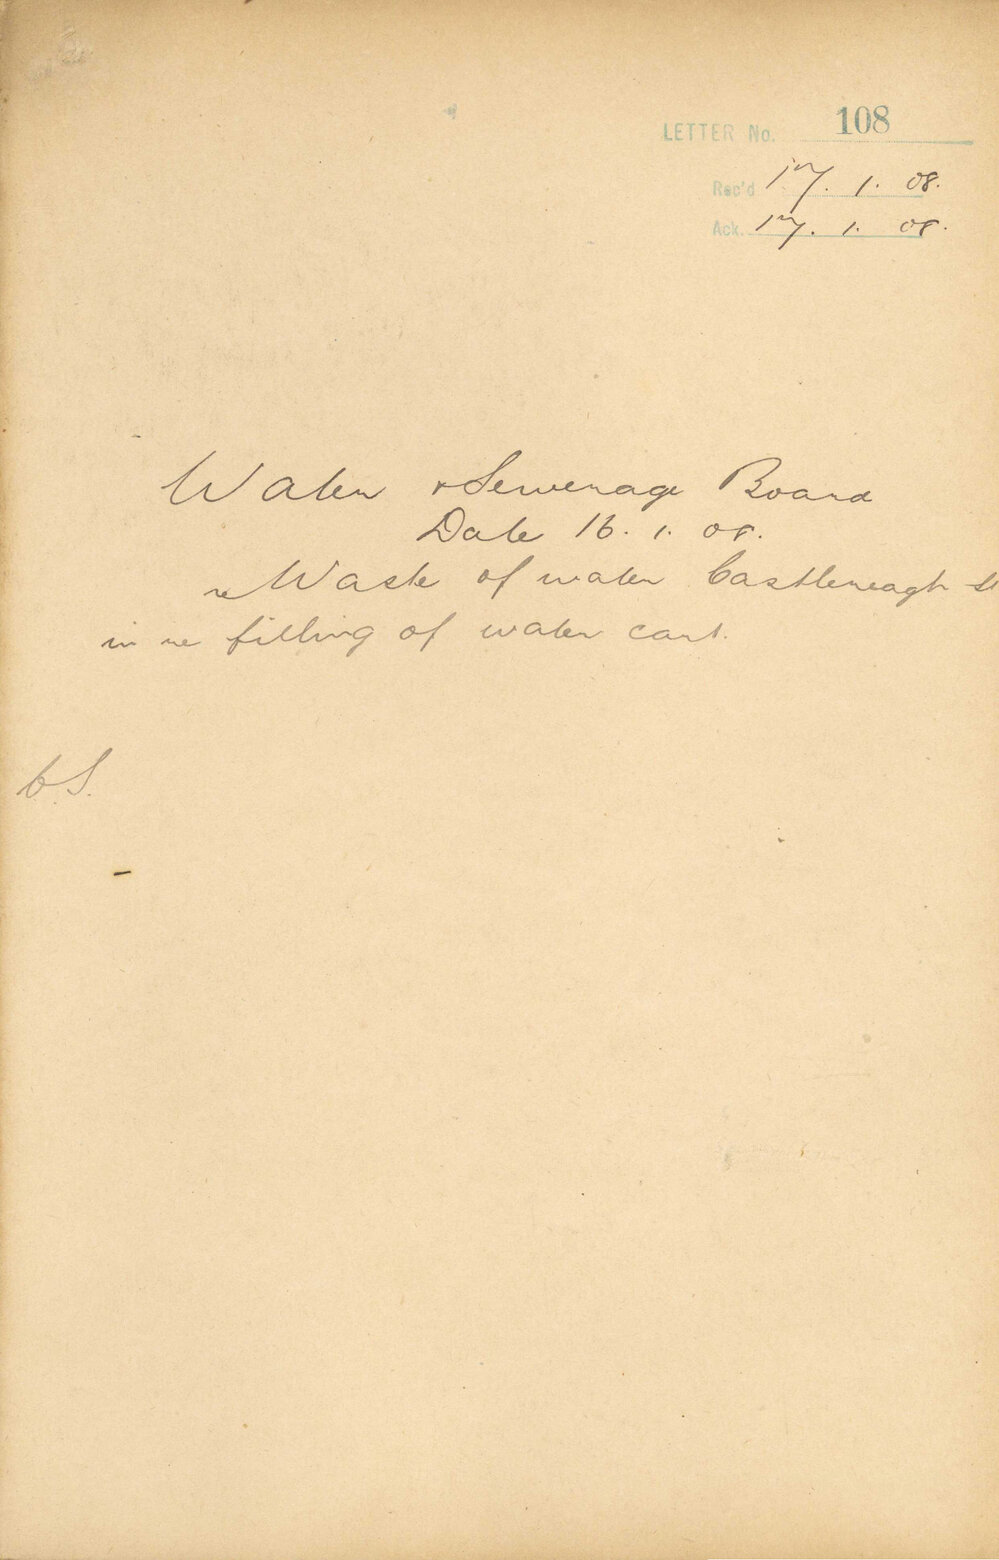 LETTER No. 108
Rec'd 17. 1. 08.
Ack. 17. 1. 08.
Water & Sewerage Board
Date 16. 1. 08.
re Waste of water Castlereagh St
in re filling of water cart.
C.S.